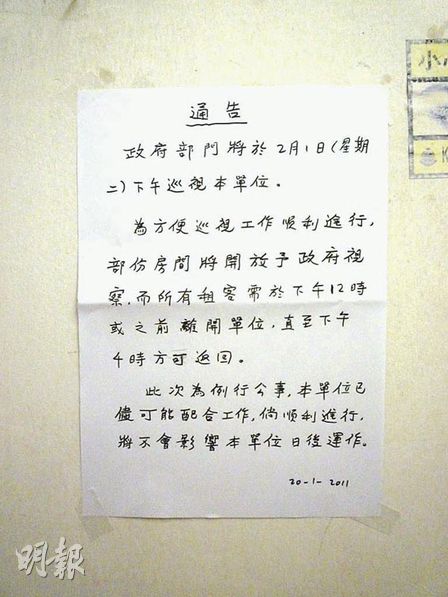 通告
政府部門將於2月1日(星期
二)下午巡視本單位。
為方便巡視工作順利進行,
部份房間將開放予政府視
察,而所有租客需於下午12時
或之前離開單位,直至下午
4時方可返回。
此次為例行公事,本單位已
儘可能配合工作,倘順利進行,
將不會影響本單位日後運作。
20-1-2011
小心
明報